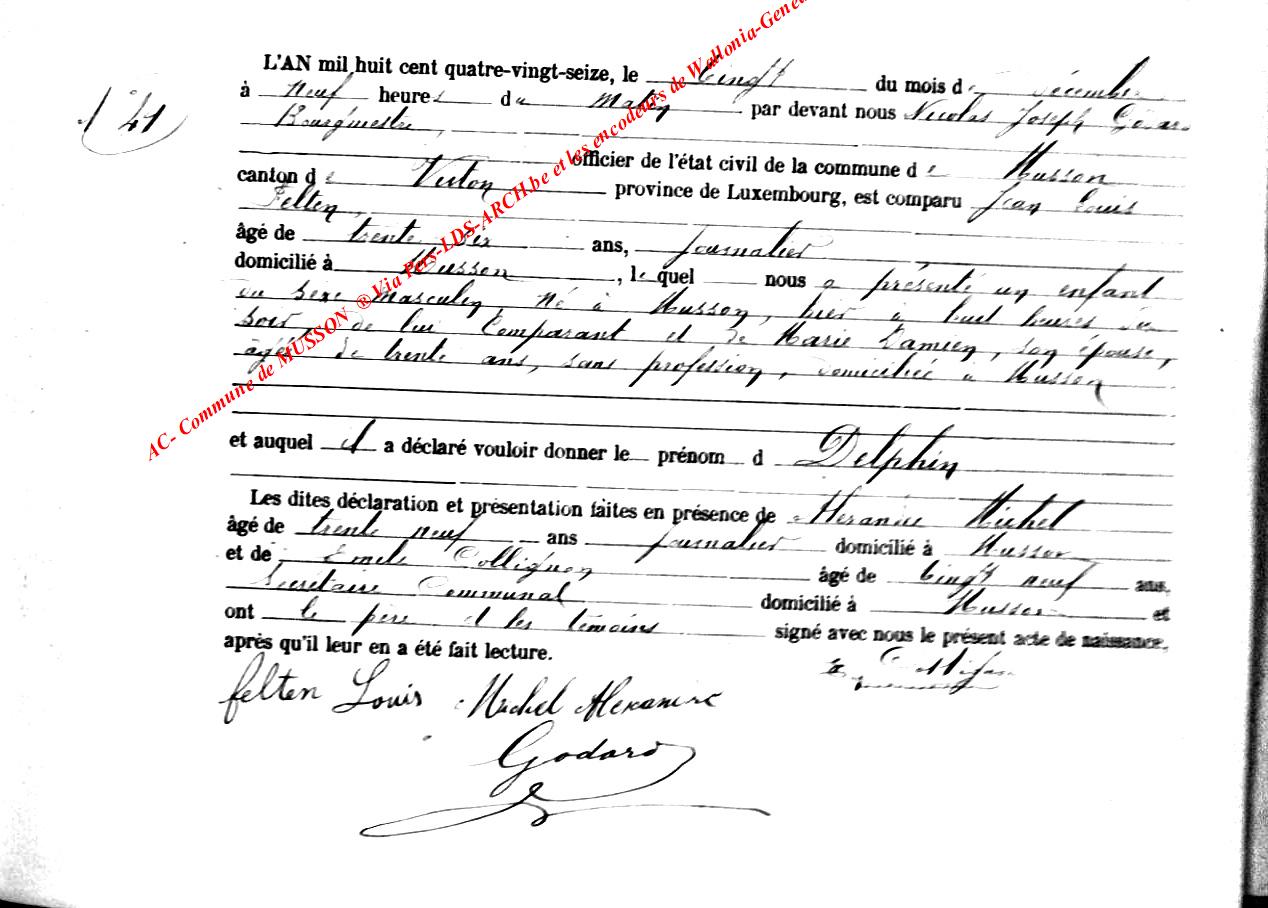 L'AN mil huit cent quatre-vingt-seize, le vingt du mois de décembre
à neuf heures du matin par devant nous Nicolas Joseph Godard
Bourgmestre,
officier de l'état civil de la commune de Musson
canton de Virton province de Luxembourg, est comparu Jean Louis
Felten,
âgé de trente six ans, journalier,
domicilié à Musson, lequel nous a présenté un enfant
du sexe masculin, né à Musson, hier à huit heures du
soir, de lui Comparant et de Marie Damien, son épouse,
âgée de trente ans, sans profession, domiciliée à Musson
et auquel il a déclaré vouloir donner le prénom d Delphin
Les dites déclaration et présentation faites en présence de Alexandre Michel
âgé de trente neuf ans journalier domicilié à Musson
et de Emile Collignon âgé de vingt neuf ans,
Secrétaire Communal domicilié à Musson et
ont le père et les témoins signé avec nous le présent acte de naissance,
après qu'il leur en a été fait lecture.
felten Louis Michel Alexandre
Godard
N° 41
AC- Commune de MUSSON ® Via Pers-LDS-ARCH.be et les encodeurs de Wallonia-Gene